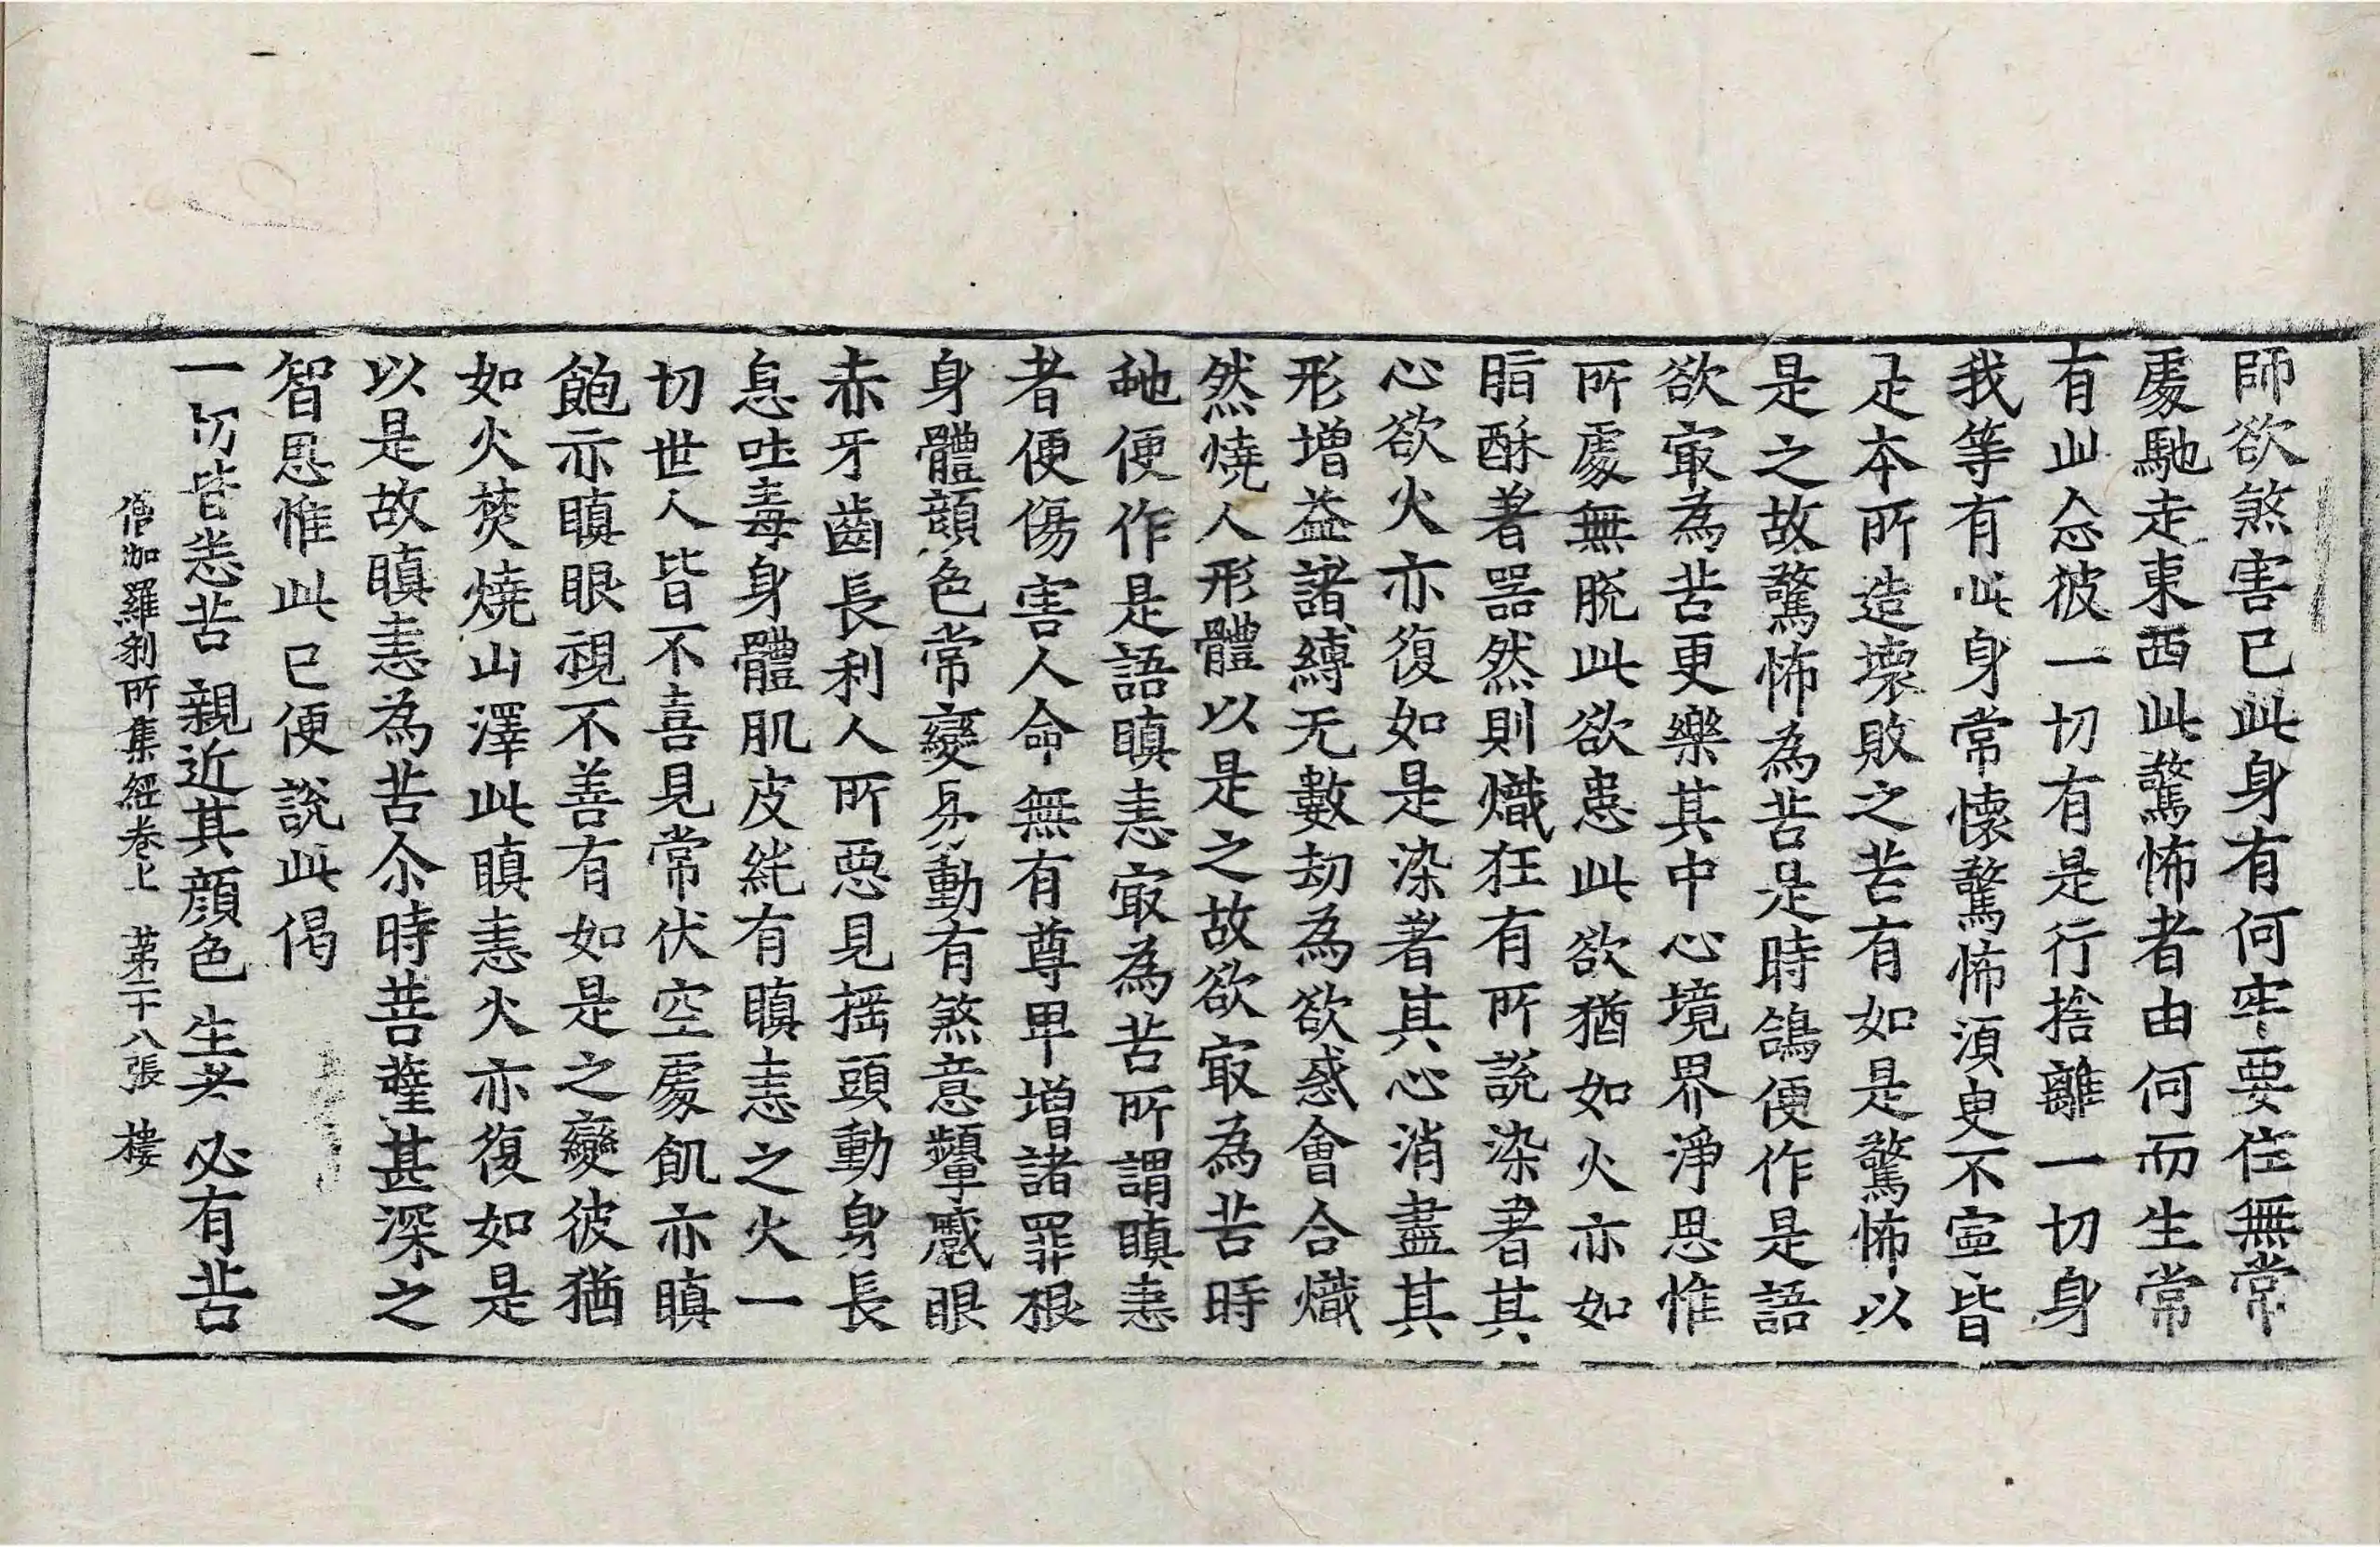 師欲煞害已此身有何牢要住無常
處馳走東西此驚怖者由何而生常
有此念彼一切有是行捨離一切身
我等有此身常懷驚怖須臾不寧皆
是本所造壞敗之苦有如是驚怖以
是之故驚怖為苦是時鴿便作是語
欲㝡為苦更樂其中心境界淨思惟
所處無脫此欲患此欲猶如火亦如
脂酥著器然則熾狂有所說染著其
心欲火亦復如是染著其心消盡其
形增益諸縛无數劫為欲惑會合熾
然燒人形體以是之故欲㝡為苦時
虵便作是語瞋恚㝡為苦所謂瞋恚
者便傷害人命無有尊卑增諸罪根
身體顏色常變易動有煞意顰蹙眼
赤牙齒長利人所惡見搖頭動身長
息吐毒身體肌皮毦有瞋恚之火一
切世人皆不喜見常伏空處飢亦瞋
飽亦瞋眼視不善有如是之變彼猶
如火焚燒山澤此瞋恚火亦復如是
以是故瞋恚為苦尒時菩薩甚深之
智思惟此已便說此偈
一切皆恙苦 親近其顏色 生老 必有苦
僧伽羅刹所集經卷上 苐二十八張 樓